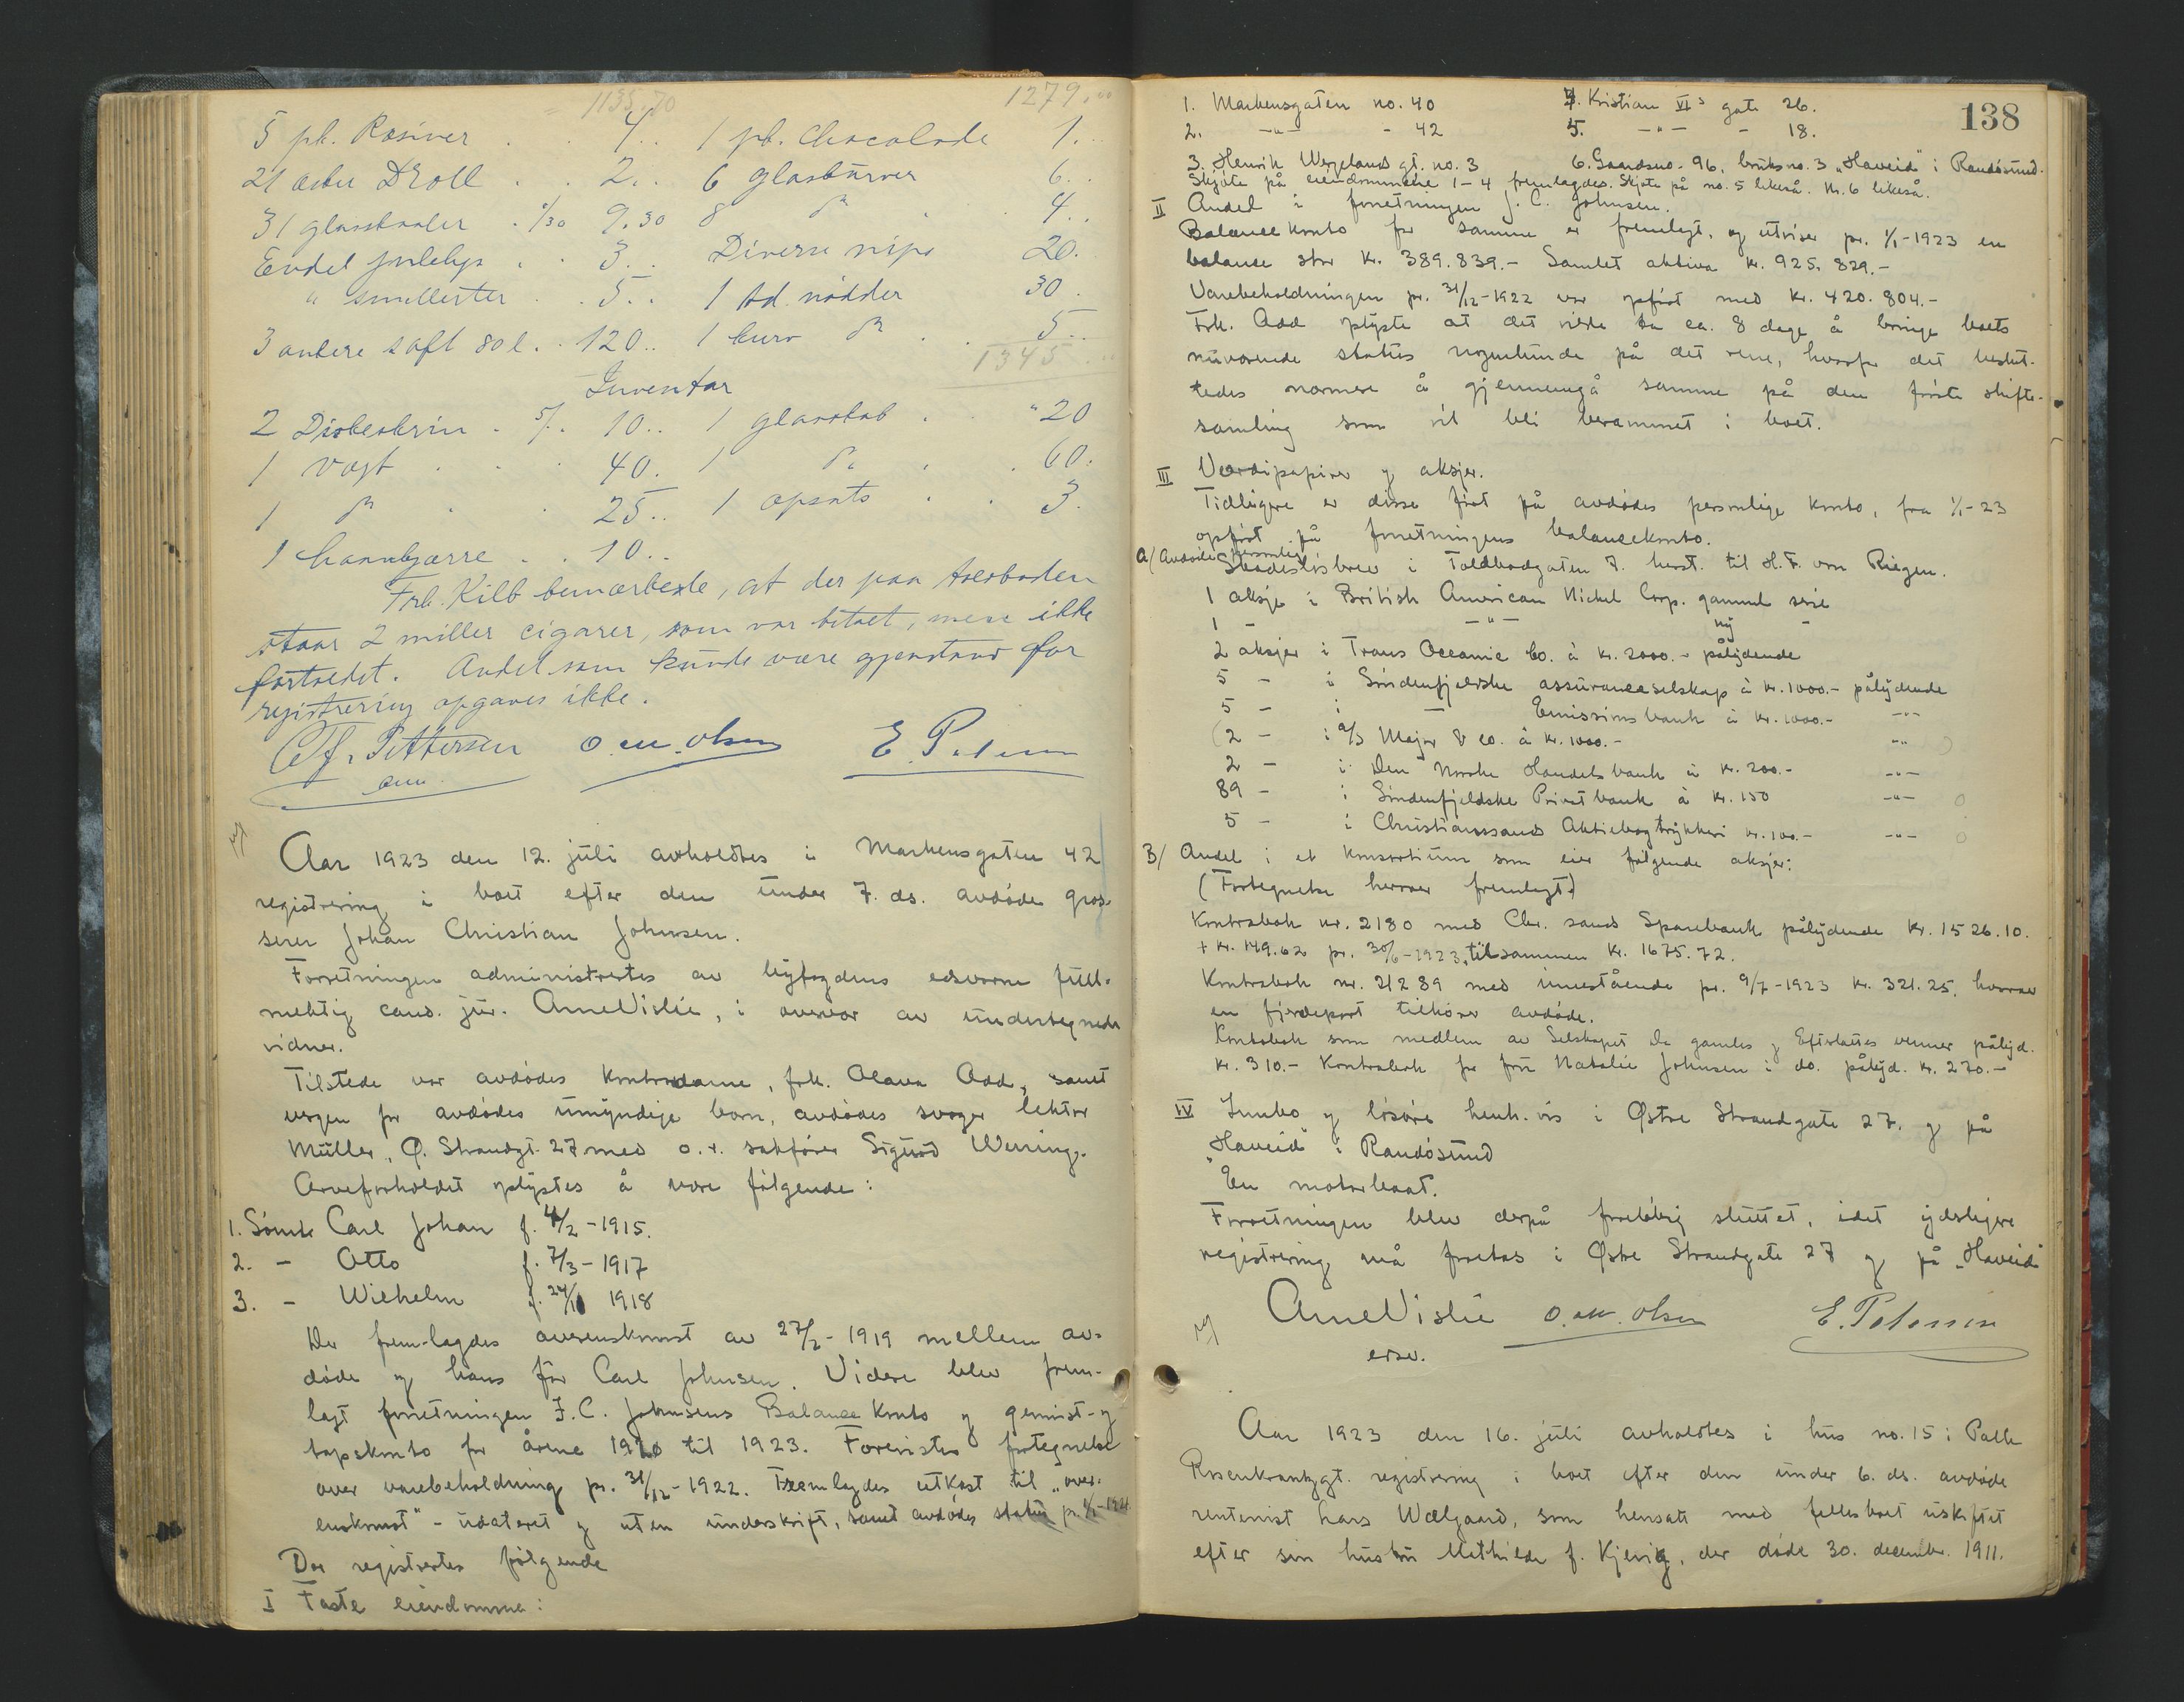 1135.70 1279.00
5 pk. Rosiner . . 4.. 1 pk. Chocolade 1..
21 æsker Droll . . 2.. 6 glaskurver 6..
31 glasskaaler . ⁰/30 9.30 8 do . . 4..
Endel julelys . . 3.. Diverse nips 20..
" smultester . . 5.. 1 td. nødder 30.
3 ankere saft 80 l. . 120.. 1 kurv do . . 5..
1345..
Inventar
2 Diskeskrin . 5/. 10.. 1 glasskab . " 20
1 vægt . . . 40. 1 do . . 60.
1 do . . 25.. 1 opsats . . 3.
1 haandkjærre . . 10..
Frk. Kilb bemærkede, at der paa
staar 2 miller cigarer, som var betalt, mens ikke
fortoldet. Andet som kunde være gjenstand for
registrering opgaves ikke.
Alf. Pettersen O. M. Olsen E. Petersen
Aar 1923 den 12. juli avholdtes i Markensgaten 42
registrering i boet efter den under 7. ds. avdøde gros-
serer Johan Christian Johnsen.
Forretningen administrertes av byfogdens edsvorne full-
mektig cand. jur. Arne Vislie, i overvær av undertegnede
vidner.
Tilstede var avdødes kontordame, frk. Olava Odd, samt
vergen for avdødes umyndige barn, avdødes svoger lektor
Müller, Ø. Strandgt. 27 med o.r. sakfører Sigurd Wenning.
Arveforholdet oplystes å være følgende:
1. Sønn Carl Johan f. 4/2 - 1915.
2. - Otto f. 7/3 - 1917
3. - Wilhelm f. 24/11 1918
Der frem-lagdes overenskomst av 27/2 - 1919 mellem av-
døde og hans far Carl Johnsen. Videre blev frem-
lagt forretningen J.C. Johnsens Balancekonto og gevinst- og
tapskonto for årene 1920 til 1923. Forevistes fortegnelse
over varebeholdning pr. 31/12 - 1922. Fremlagdes utkast til "over-
enskomst" - udatert og uten underskrift, samt avdødes status pr. 1/1 -
Der registrertes følgende
I Faste eiendomme:
138
1. Markensgaten no. 40 4. Kristian VIs gate 26.
2. -"- - 42 5. -"- - 18.
3. Henrik Wergelands gt. no. 3 6. Gaardsno. 96, bruksno. 3 "Haveid" i Randøsund.
Skjøte på eiendommene 1-4 fremlagdes. Skjøte på no. 5 likeså. Nr. 6 likeså.
II Andel i forretningen J. C. Johnsen.
Balancekonto for samme er fremlagt, og utviser pr. 1/1 - 1923 en
balanse stor kr. 389.839.- Samlet aktiva kr. 925.829.-
Varebeholdningen pr. 31/12 - 1922 var opført med kr. 420.804.-
Frk. Odd oplyste at det vilde ta ca. 8 dage å bringe boets
nuværende status nogenlunde på det rene, hvorfor det beslut-
tedes nærmere å gjennemgå samme på den første skifte-
samling som vil bli berammet i boet.
III Værdipapirer og aksjer.
Tidligere er disse ført på avdødes personlige konto, fra 1/1-23
opført på forretningens balancekonto.
A/ Avdødes personlige
Skadesløsbrev i Toldbodgaten 7. herst. til H.F. von Riegen.
1 aksje i British American Nickel Corp. gammel serie
1 - -"- ny -
2 aksjer i Trans Oceanic Co. à kr. 2000.- pålydende
5 - i Søndenfjeldske assuranceselskap à kr. 1000.- pålydende
5 - i - Emissions bank à kr. 1000.- -"-
(2 - i A/S Major & Co. à kr. 1000.- -"- )
2 - i Den Norske Handelsbank à kr. 200.- -"-
89 - i Søndenfjeldske Privatbank à kr. 150 -"-
5 - i Christianssands Aktiebogtrykkeri kr. 100.- -"-
B/ Andel i et konsortium som eier følgende aksjer:
(Fortegnelse herover fremlagt.)
Kontrabok nr. 2180 med Chr. sands Sparebank pålydende kr. 1526.10.
+ kr. 149.62 pr. 30/6 - 1923, tilsammen kr. 1675.72.
Kontrabok nr. 21289 med innestående pr. 9/7 - 1923 kr. 321.25, hvorav
en fjerdepart tilhører avdøde.
Kontrabok som medlem av Selskapet De gamles og Efterlattes venner pålyd.
kr. 310.- Kontrabok for fru Natalie Johnsen i do. pålyd. kr. 270.-
IV Innbo og løsøre henh.vis i Østre Strandgate 27. og på
"Haveid" i Randøsund
En motorbaat.
Forretningen blev derpå foreløbig sluttet, idet ydeligere
registrering må foretas i Østre Strandgate 27 og på "Haveid"
Arne Vislie O. M. Olsen E. Petersen
edsv.
Aar 1923 den 16. juli avholdtes i hus no. 15 i Palle
Rosenkrantzgt. registrering i boet efter den under 6. ds. avdøde
rentenist Lars Wælgaard, som hensatt med fellesboet uskiftet
efter sin hustru Mathilde f. Kjevig, der døde 30. december 1911.